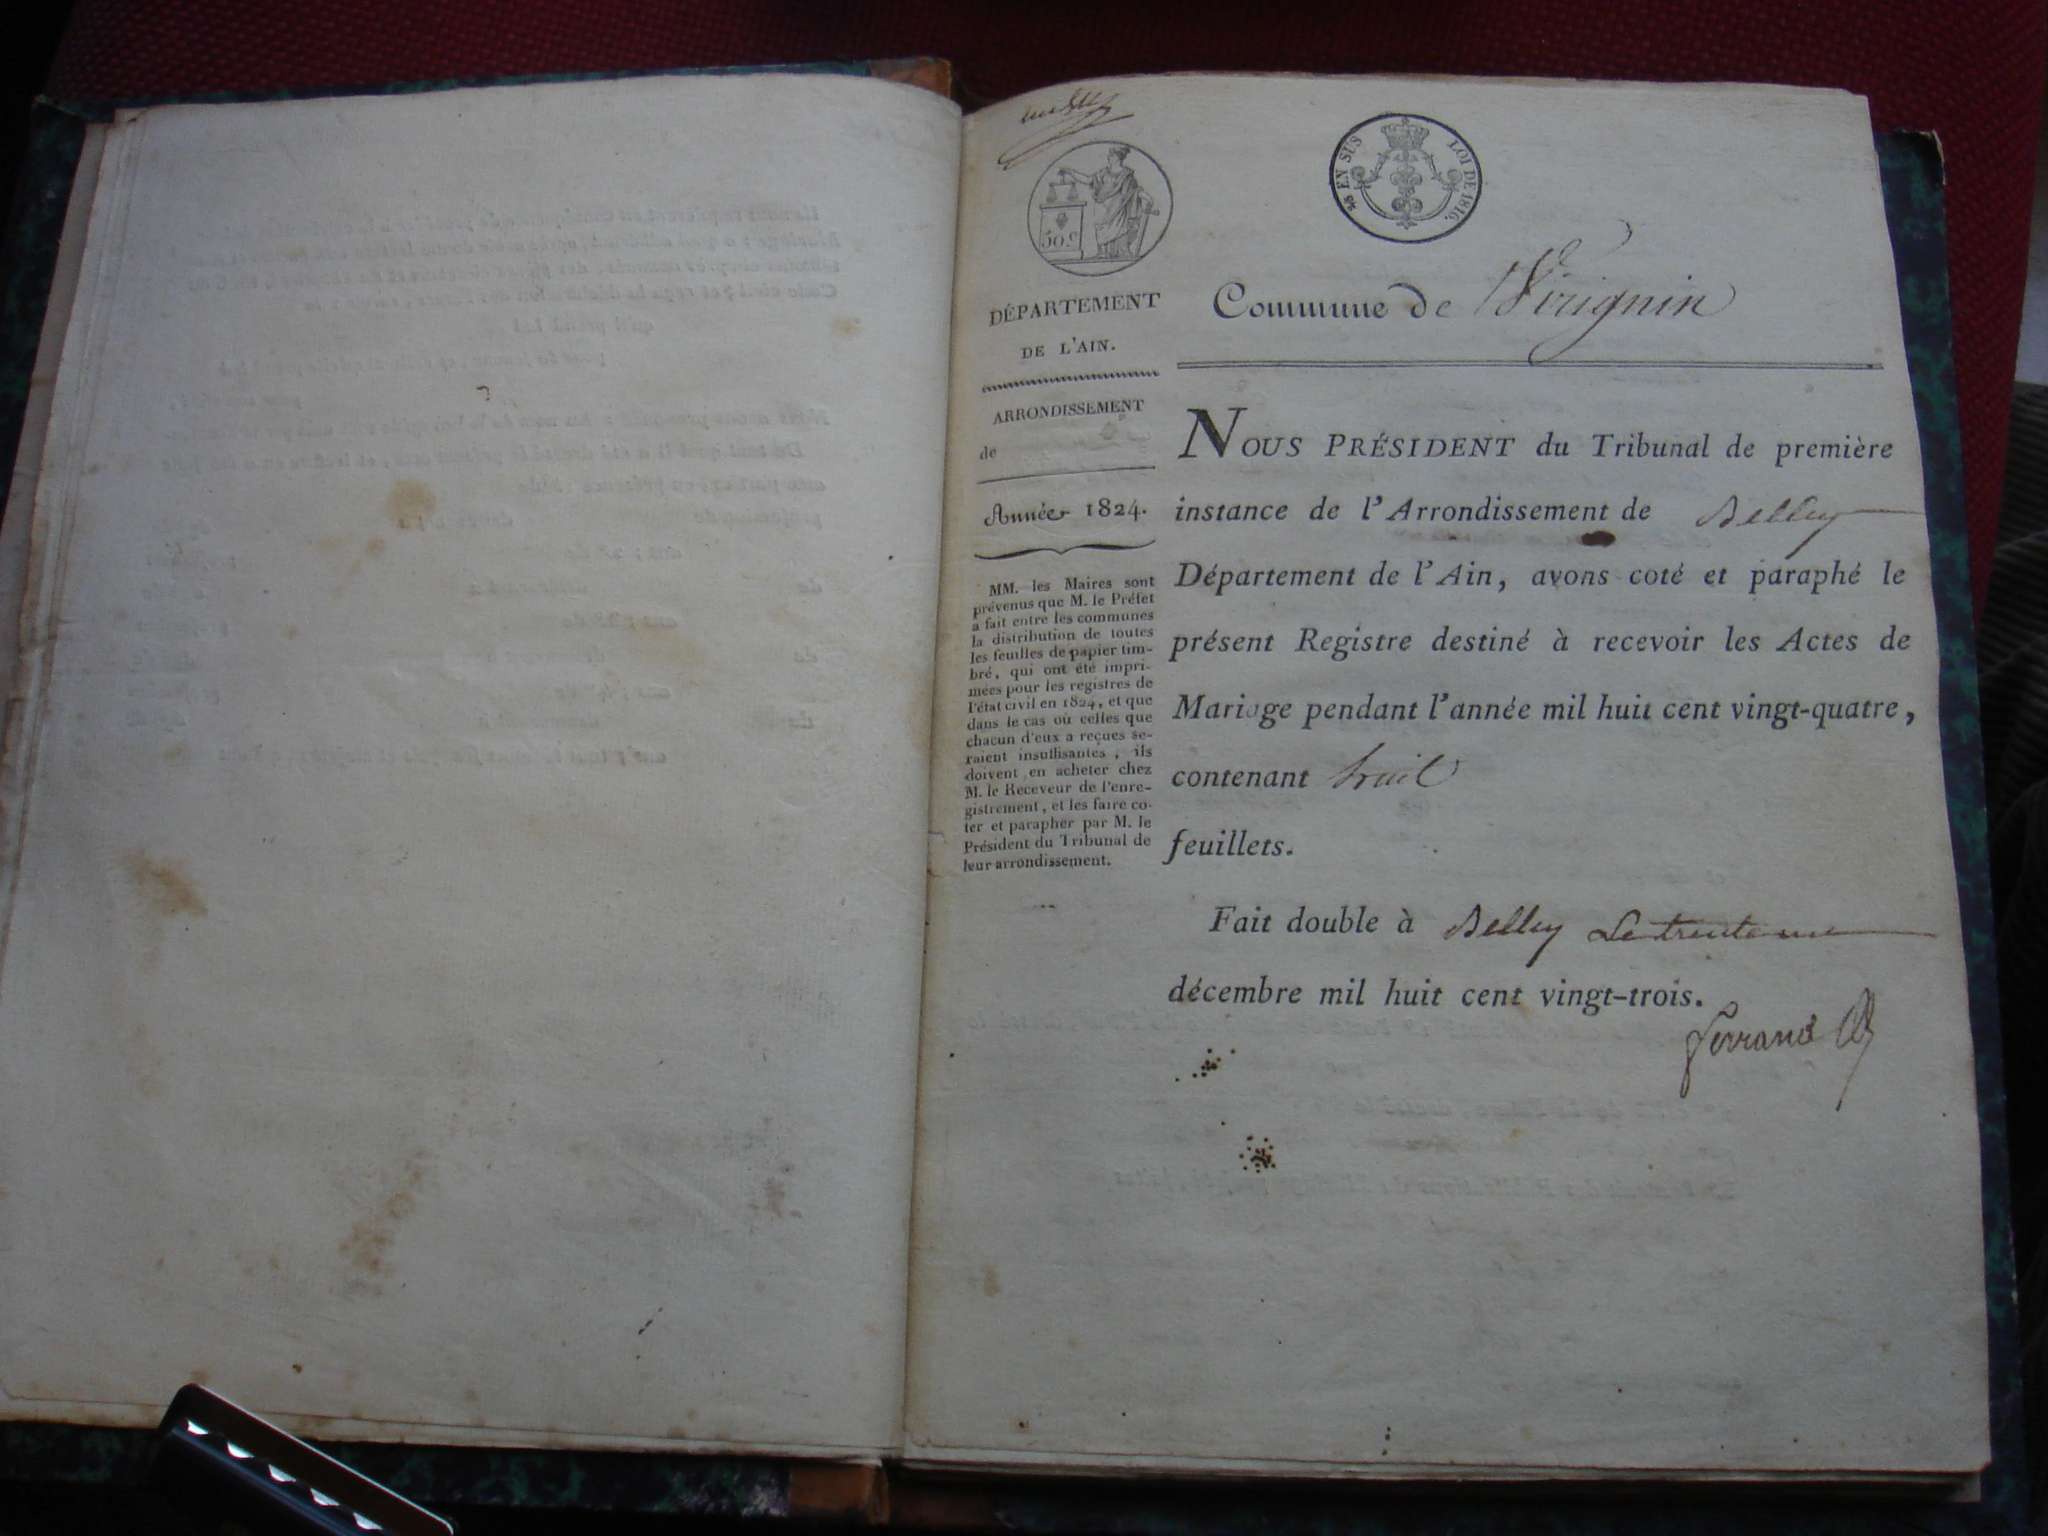 50.c
48 EN SUS LOI DE 1816.
DÉPARTEMENT
DE L'AIN.
ARRONDISSEMENT
de
Année 1824.
MM. les Maires sont
prévenus que M. le Préfet
a fait entre les communes
la distribution de toutes
les feuilles de papier tim-
bré, qui ont été impri-
mées pour les registres de
l'état civil en 1824, et que
dans le cas où celles que
chacun d'eux a reçues se-
raient insuffisantes, ils
doivent en acheter chez
M. le Receveur de l'enre-
gistrement, et les faire co-
ter et parapher par M. le
Président du Tribunal de
leur arrondissement.
Commune de Virignin
NOUS PRÉSIDENT du Tribunal de première
instance de l'Arrondissement de Belley
Département de l'Ain, avons coté et paraphé le
présent Registre destiné à recevoir les Actes de
Mariage pendant l'année mil huit cent vingt-quatre,
contenant huit
feuillets.
Fait double à Belley Le trente
décembre mil huit cent vingt-trois.
Ferrand